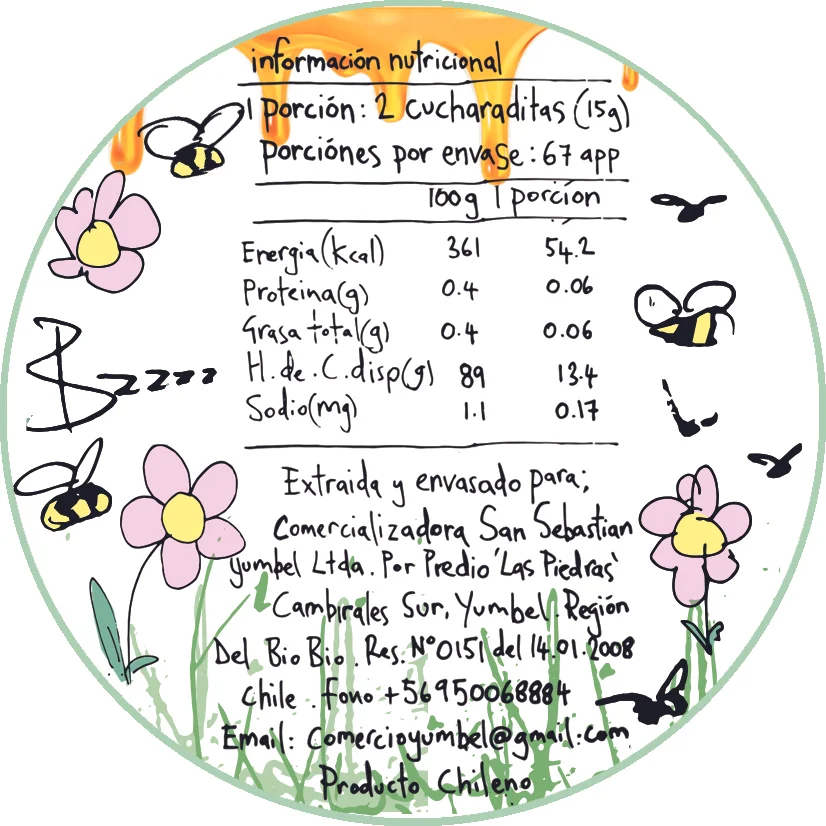 información nutricional
1 Porción: 2 cucharaditas (15g)
Porciónes por envase: 67 app
100g 1 porción
Energia (Kcal) 361 54.2
Proteina (g) 0.4 0.06
Grasa total (g) 0.4 0.06
H.de.C.disp(g) 89 13.4
Sodio(mg) 1.1 0.17
Bzzzz
Extraida y envasado para;
Comercializadora San Sebastian
yumbel Ltda. Por Predio 'Las Piedras'
Cambrales Sur, Yumbel. Región
Del Bio Bio. Res. N°0151 del 14.01.2008
Chile. fono +56950068884
Email: Comercioyumbel@gmail.com
Producto Chileno